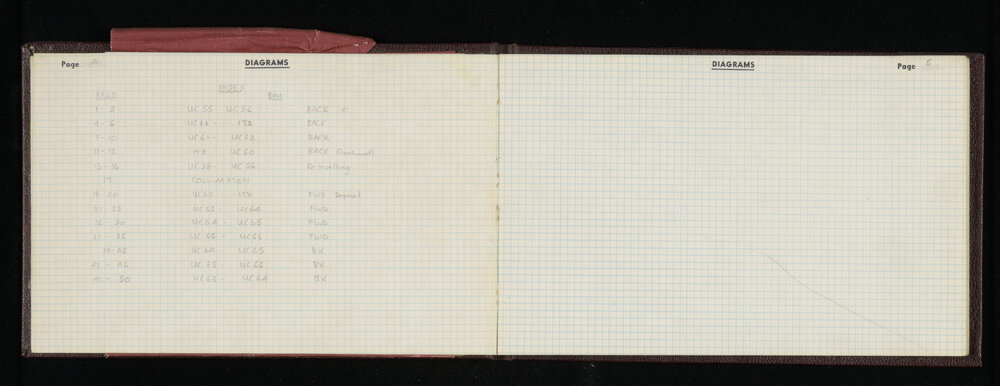 Page A DIAGRAMS
INDEX
PAGE Run
1 - 3 UC 55 - UC 56 BACK X
4 - 6 UC61 - IT2 BACK
7 - 10 UC61 - UC62 BACK
11 - 12 IT2 - UC60 BACK (continued)
13 - 16 UC55 - UC 56 Re-levelling
17 COLLIMATION
18 - 20 UC60 - IT2 FWD Repeat
21 - 25 UC 63 - UC64 FWD
26 - 30 UC64 - UC65 FWD
31 - 35 UC 65 - UC66 FWD
UC 64 - UC65 BK
UC 65 - UC66 BK
- 50 UC63 - UC64 BK
DIAGRAMS Page